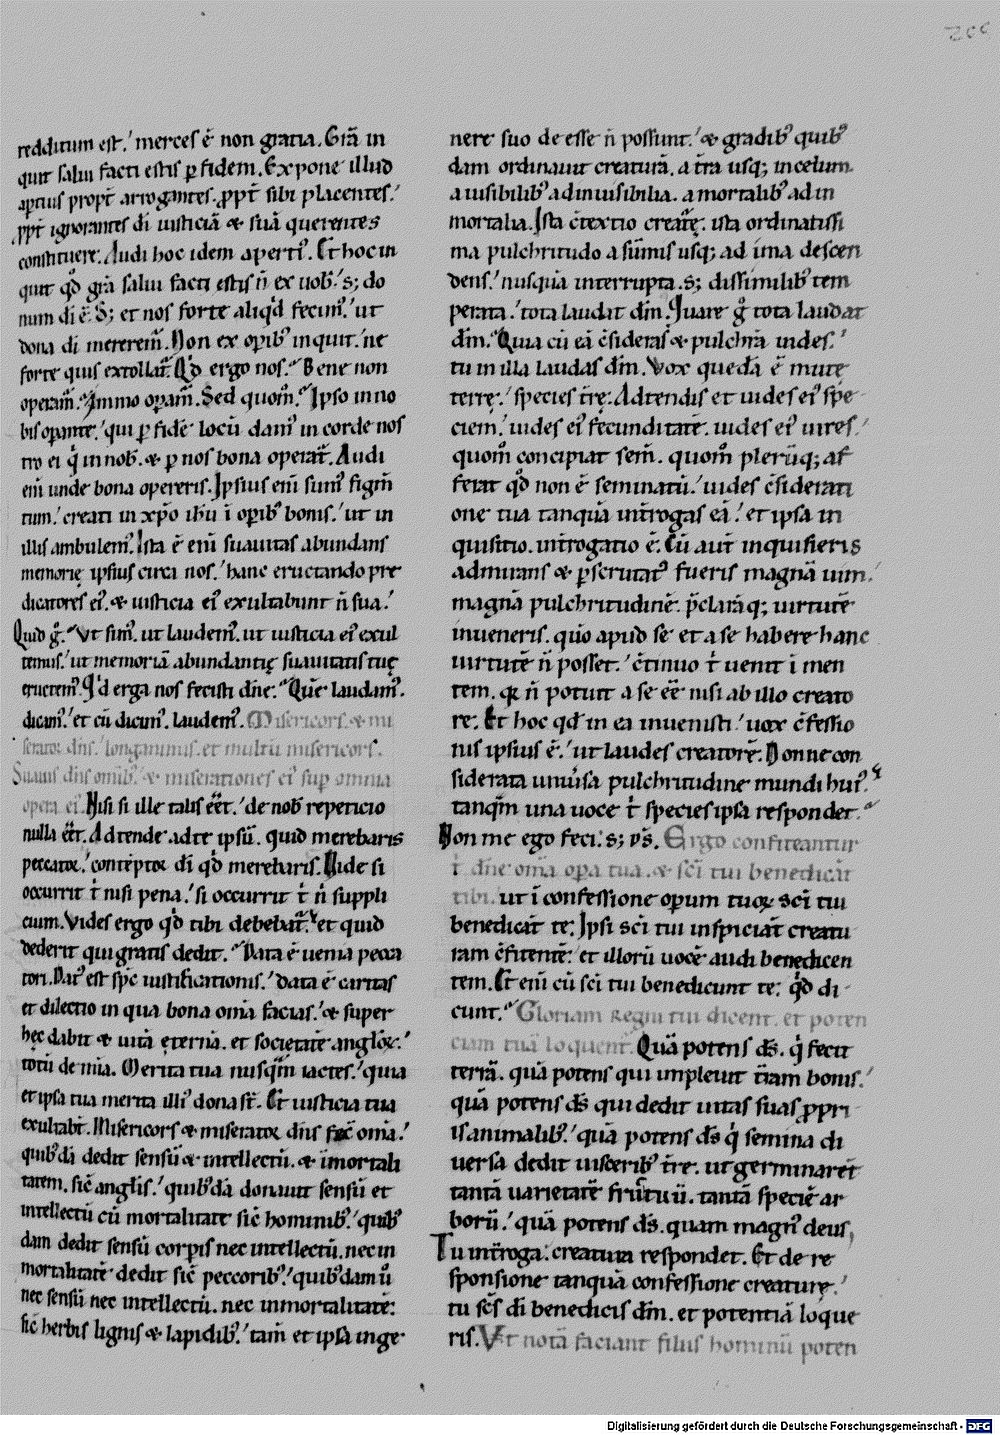 200
redditum est.' merces ē non gratia. Grā in
quit salui facti estis ꝑ fidem. Expone illud
aptius propt̄ arrogantes. ꝓpt̄ sibi placentes.'
ꝓpt̄ ignorantes di iusticiā & suā querentes
constituere. Audi hoc idem aperti᷒. Et hoc in
quit qđ grā salui facti estis n̄ ex uob᷒.' s; do
num di ē. S; et nos forte aliqđ fecim᷒.' ut
dona di mererem̄. Non ex oꝑib᷒ inquit.' ne
forte quis extollat̄. Qđ ergo nos. Bene non
operam̄. Immo oꝑam̄. Sed quom̄. Ipso in no
bis oꝑante.' qui ꝑ fidē locū dam᷒ in corde nos
tro ei q̇ in nob᷒. & ꝑ nos bona operat̄. Audi
eni unde bona opereris. Ipsius eni sum᷒ figm̄
tum.' creati in xp̄o ihū ī oꝑib᷒ bonis.' ut in
illis ambulem᷒. Ista ē eni suauitas abundans
memorię ipsius circa nos.' hanc eructando pre
dicatores ei᷒. & iusticia ei᷒ exultabunt n̄ sua.'
Quid g̊. Vt sim᷒. ut laudem᷒. ut iusticia ei᷒ exul
temus.' ut memoriā abundantię suauitatis tuę
eructem᷒. Qđ erga nos fecisti dn̄e. Quē laudam᷒.
dicam᷒.' et cū dicim᷒. laudem᷒. Misericors & mi
serator dn̄s.' longanimis. et multū misericors.
Suauis dn̄s omīb᷒. & miserationes ei᷒ suꝑ omnia
opera ei᷒. Nisi si ille talis eēt.' de nob᷒ repeticio
nulla eēt. Adtende ad te ipsū. quid merebaris
peccator.' contēptor di qđ merebaris. Vide si
occurrit t̄ nisi pena.' si occurrit t̄ n̄ suppli
cium. Vides ergo qđ tibi debebat̄. et quid
dederit qui gratis dedit. Data ē uenia pecca
tori. Dat᷒ est spc̄ iustificationis.' data ē caritas
et dilectio in qua bona omīa facias.' & super
hęc dabit & uitā ęternā. et societatē anglōꝝ.'
totū de mīa. Merita tua nusq̄m iactes.' quia
et ipsa tua merita illi᷒ dona st̄. Et iusticia tua
exultabt̄. Misericors & miserator dn̄s omīa.'
quib᷒dā dedit sensū & intellectū. & īmortali
tatem. sic̄ anglis.' quib᷒dā donauit sensū et
intellectū cū mortalitate sic̄ hominib᷒.' quib᷒
dam dedit sensū corꝑis nec intellectū. nec in
mortalitatē dedit sic̄ peccorib᷒.' quib᷒dam ů
nec sensū nec intellectū. nec inmortalitatē:
sic̄ herbis lignis & lapidib᷒.' tam̄ et ipsa inge
nere suo de esse n̄ possunt.' & gradib᷒ quib᷒
dam ordinauit creaturā. a t̄ra usq; in celum.
a uisibilib᷒ ad inuisibilia. a mortalib᷒ ad in
mortalia. Ista c̄textio creat̄ę. ista ordinatissi
ma pulchritudo a sūmis usq; ad ima descen
dens.' nusquā interrupta. s; dissimilib᷒ tem
perata.' tota laudat dm̄. Quare g̊ tota laudat
dm̄. Quia cū eā c̄sideras & pulchrā uides.'
tu in illa laudas dm̄. Vox quedā ē mutę
terrę.' species t̄rę. Adtendis et uides ei᷒ spe
ciem.' uides ei᷒ fecunditatē. uides ei᷒ uires.'
quom̄ concipiat sem̄. quom̄ plerūq; af
ferat qđ non ē seminatū.' uides c̄siderati
one tua tanquā int̄rogas eā.' et ipsa in
quisitio. int̄rogatio ē. Cū aut̄ inquisieris
admirans & ꝑscrutat᷒ fueris magnā uim.'
magnā pulchritudinē. p̄claráq; uirtutē
inueneris. quō apud se et a se habere hanc
uirtutē n̄ posset.' c̄tinuo t̄ uenit ī men
tem. qꝛ n̄ potuit a se eē nisi ab illo creato
re. Et hoc qđ in ea inuenisti.' uox c̄fessio
nis ipsius ē.' ut laudes creatorē. Nonne con
siderata uniu̇sa pulchritudine mundi hui᷒.'
tanq̄m una uoce t̄ species ipsa respondet.
Non me ego feci.' s; ds̄. Ergo confiteantur
t̄ dn̄e omīa oꝑa tua. & sc̄i tui benedicāt
tibi.' ut ī confessione oꝑum tuoꝝ sc̄i tui
benedicāt te. Ipsi sc̄i tui inspiciāt creatu
ram c̄fitentē.' et illorū uocē audi benedicen
tem. Et eni cū sc̄i tui benedicunt te. qđ di
cunt. Gloriam regni tui dicent. et poten
ciam tuā loquent̄. Quā potens ds̄. q̇ fecit
terrā. quā potens qui impleuit t̄ram bonis.'
quā potens ds̄ qui dedit uitas suas ꝓpri
is animalib᷒.' quā potens ds̄ q̇ semina di
uersa dedit uiscerib᷒ t̄re. ut germinarēt
tantā uarietatē fructuū. tantā speciē ar
borū.' quā potens ds̄. quam magn᷒ deus,
Tu int̄roga.' creatura respondet. Et de re
sponsione tanquā confessione creaturę.'
tu sc̄s di benedicis dm̄. et potentiā loque
ris. Vt notā faciant filiis hominū poten
Digitalisierung gefördert durch die Deutsche Forschungsgemeinschaft - DFG